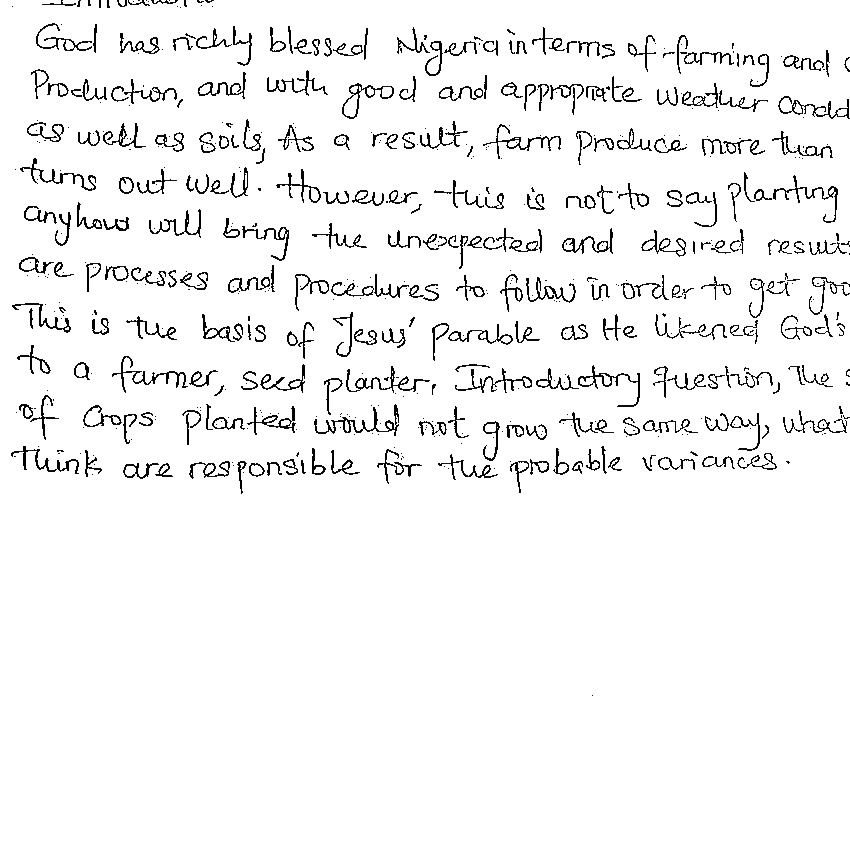 God has richly blessed Nigeria in terms of farming and
Production, and with good and appropriate weather
as well as soils, As a result, farm produce more than
turns out well. However, this is not to say planting
anyhow will bring the unexpected and desired results
are processes and procedures to follow in order to get
This is the basis of Jesus' Parable as He likened God's
to a farmer, seed planter. Introductory question, The
of Crops planted would not grow the same way, what
Think are responsible for the probable variances.